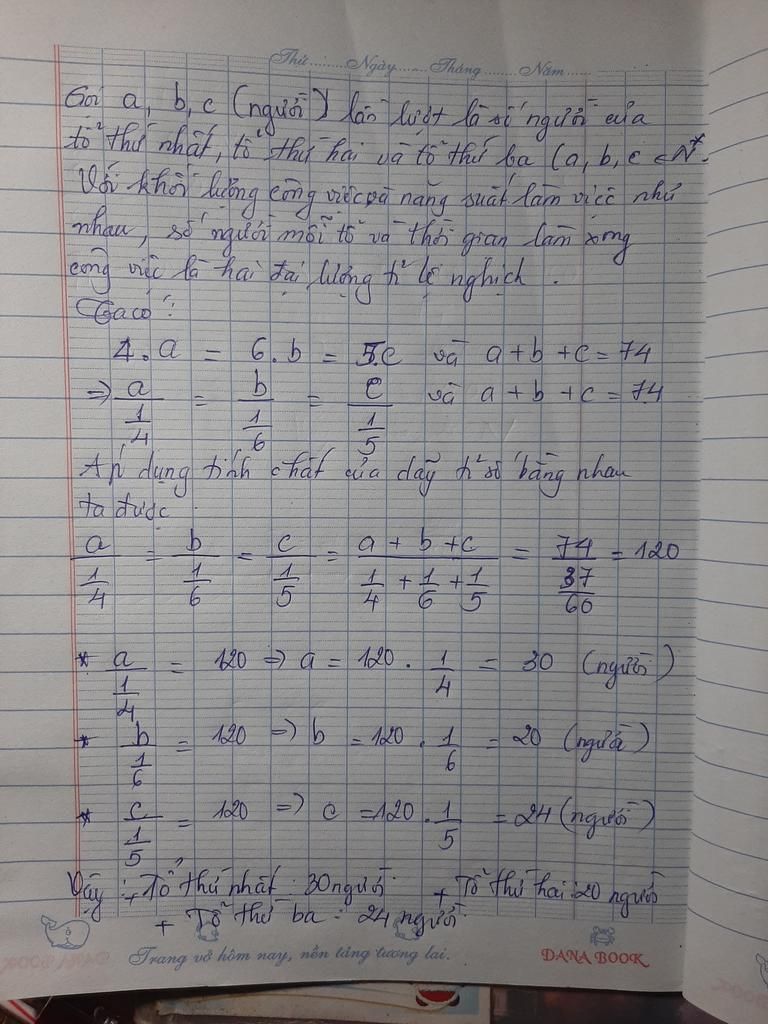 Thứ........Ngày......Tháng........Năm......
Gọi a, b, c (người) lần lượt là số người của
tổ thứ nhất, tổ thứ hai và tổ thứ ba (a, b, c ∈ N*.
Với khối lượng công việc và năng suất làm việc như
nhau, số người mỗi tổ và thời gian làm xong
công việc là hai đại lượng tỉ lệ nghịch .
Ta có :
4. a = 6. b = 5.c và a + b + c = 74
=> a/(1/4) = b/(1/6) = c/(1/5) và a + b + c = 74
Áp dụng tính chất của dãy tỉ số bằng nhau
ta được
a/(1/4) = b/(1/6) = c/(1/5) = (a + b + c)/(1/4 + 1/6 + 1/5) = 74/(37/60) = 120
* a/(1/4) = 120 => a = 120 . 1/4 = 30 (người)
* b/(1/6) = 120 => b = 120 . 1/6 = 20 (người)
* c/(1/5) = 120 => c = 120 . 1/5 = 24 (người)
Vậy : + Tổ thứ nhất : 30 người + Tổ thứ hai : 20 người
+ Tổ thứ ba : 24 người
Trang vở hôm nay, nền tảng tương lai.
DANA BOOK